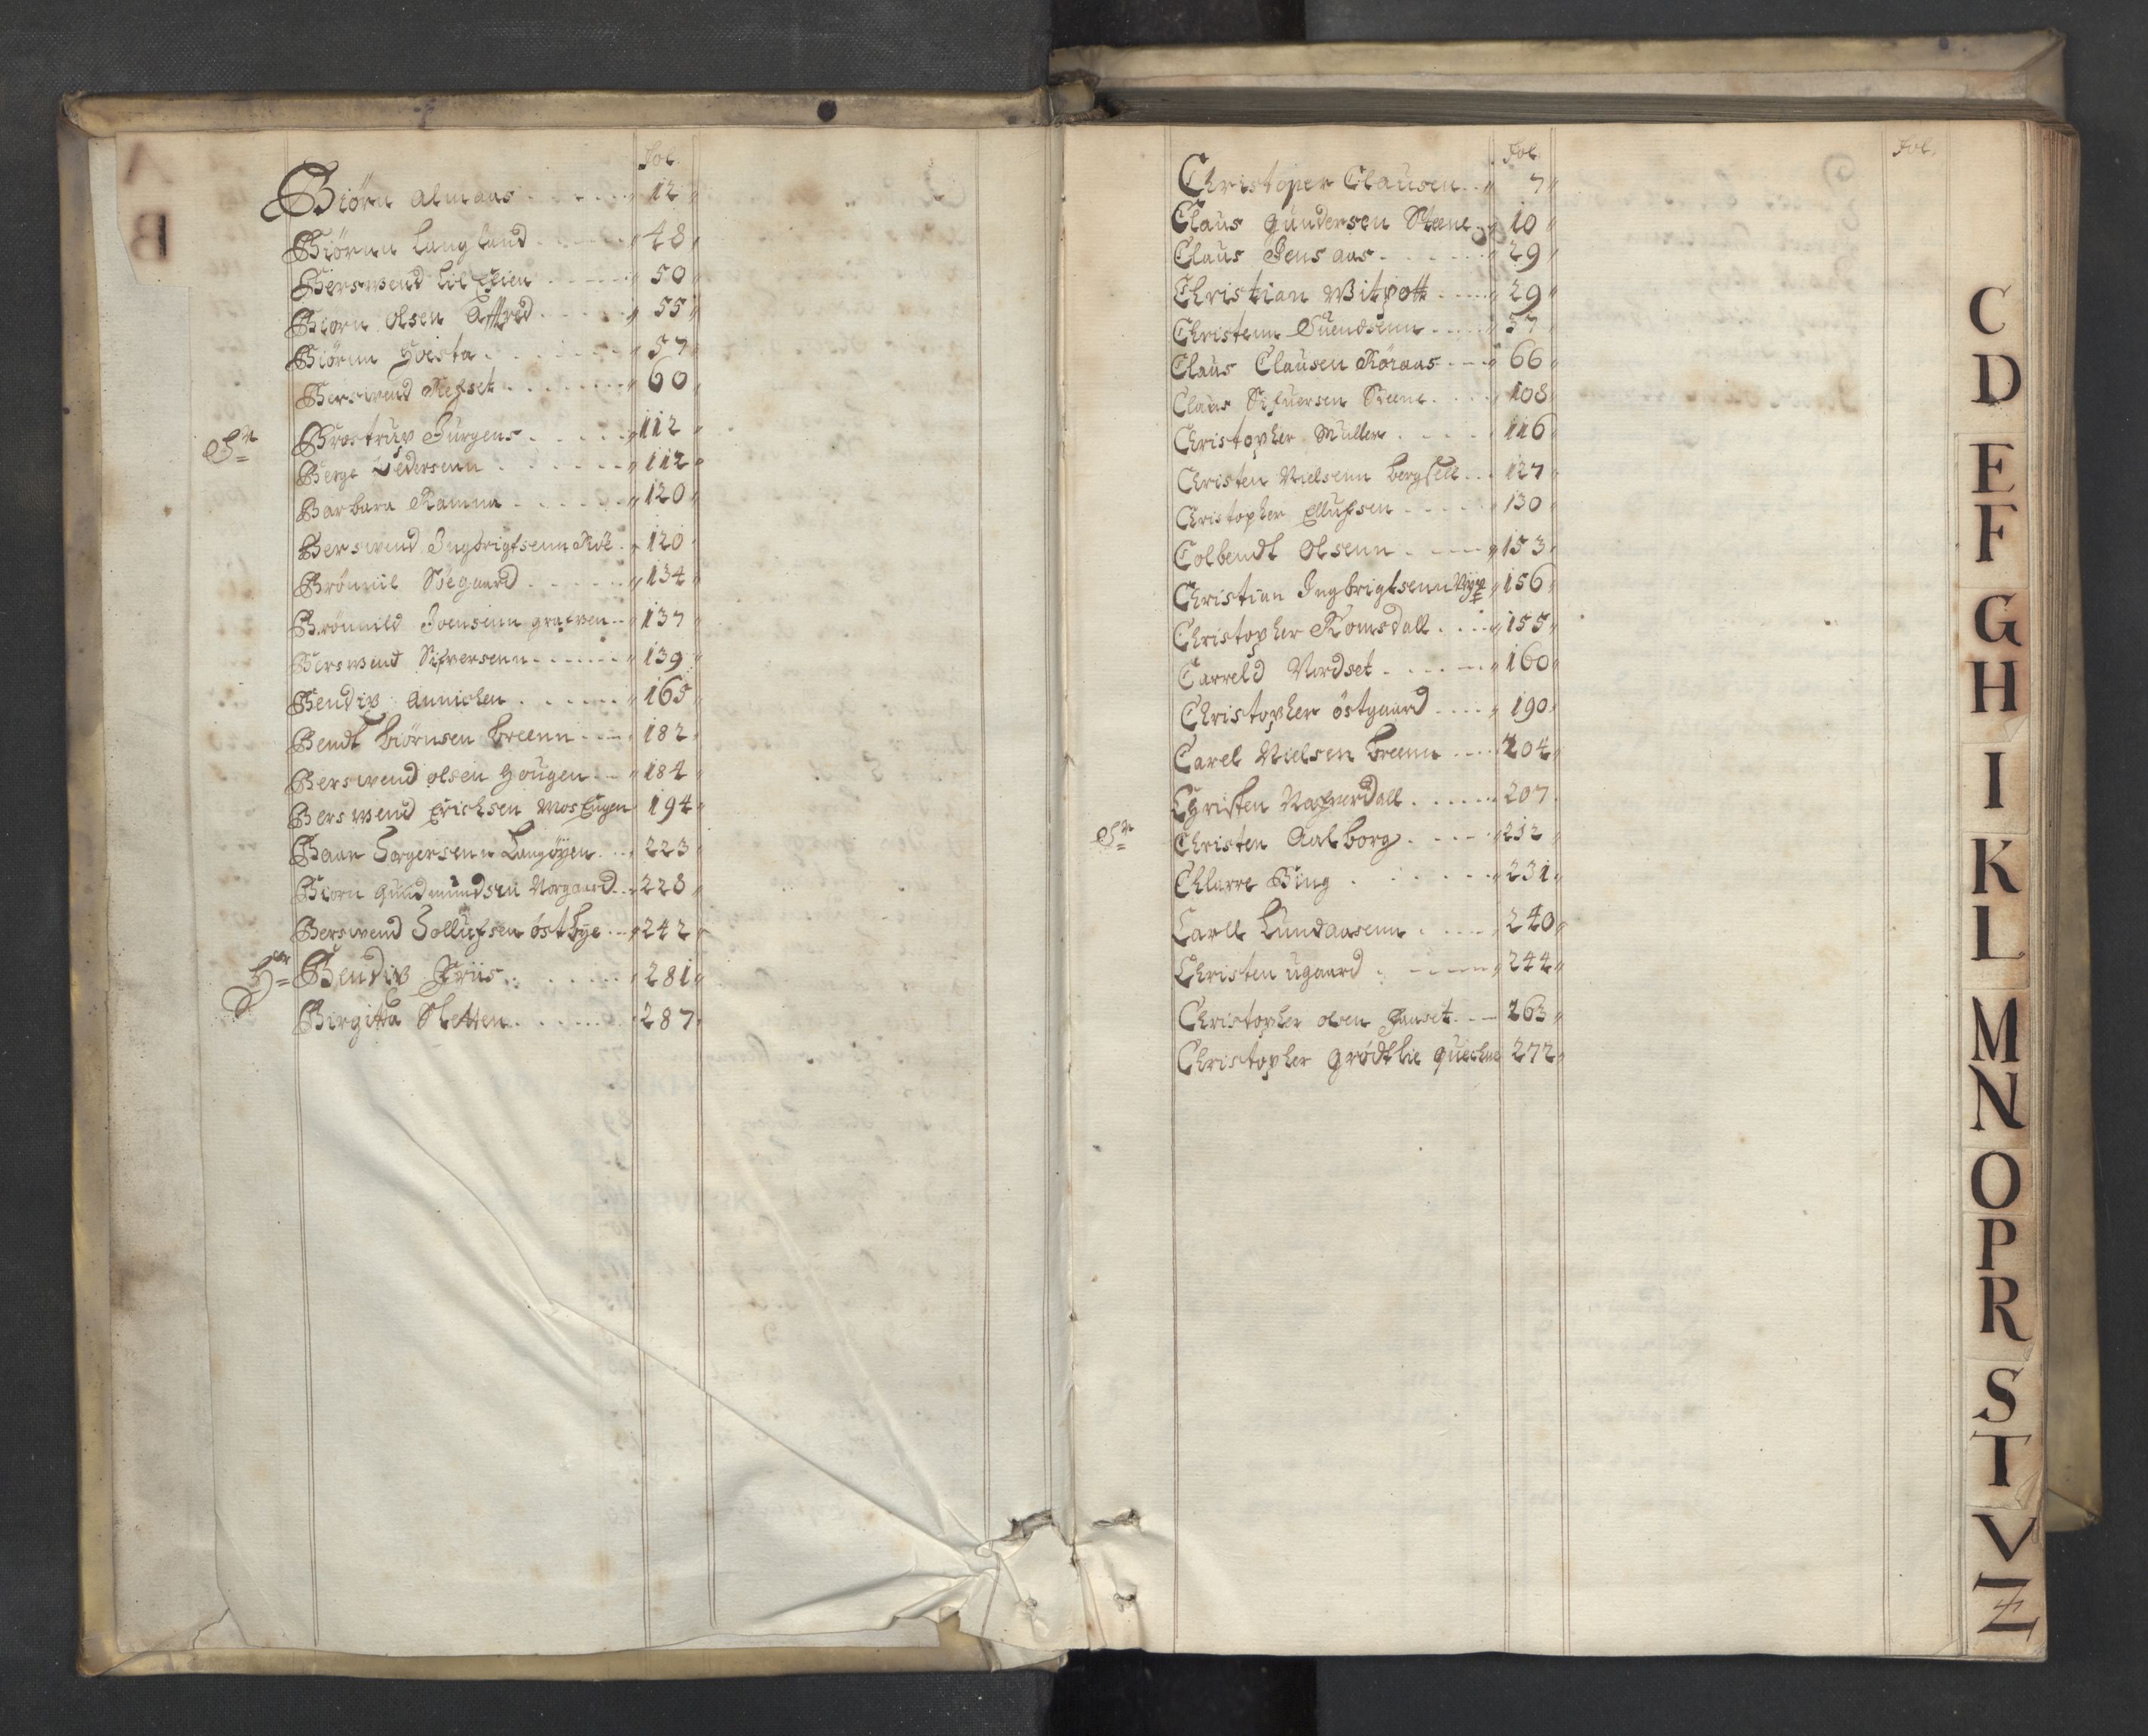 Fol.
Biörn Almaas 12
Biörnn Langland 48
Berswend Lil Eiien 50
Biorn Olsen Affred 55
Biörnn Hoista 57
Berswend Refset 60
Sr. Brostrup Jürgens 112
Berge Pedersenn 112
Barbara Ramma 120
Berswend Ingbrigtsenn Roe 120
Brönnil Söegaard 134
Brönnild Joensenn grafven 137
Berswend Sifversenn 139
Bendix Annichen 165
Bendt biörnsen breenn 182
Berswend olsen Hougen 184
Berswend Erichsen Mos Eugen 194
Baar Torgersenn Langöyen 223
Biorn Gudmundsen Norgaard 228
Berswend Tollufsen östbye 242
Hr. Bendix Friis 281
Birgitta Sletten 287
Fol.
Fol.
Christoper Clausen 7
Claus Gundersen Steene 10
Claus Jens aas 29
Christian Witpott 29
Christenn Suendsenn 57
Claus Clausen Röraas 66
Claus Sifuersen Steene 108
Christopher Muller 116
Christen Nielsenn bergsell 127
Christopher Ellufsen 130
Colbendt Olsenn 153
Christian Ingbrigtsenn 156
Christopher Romsdall 155
Carreld Nordset 160
Christopher östgaard 190
Carel Nielsen breenn 204
Christen Nafverdall 207
Sr. Christen Aalborg 212
Chlarre Bing 231
Carll Lundaasenn 240
Christen ugaard 244
Christopher olsen Fanset 263
Christopher grödtlie 272
C
D
E
F
G
H
I
K
L
M
N
O
P
R
S
T
V
Z
A
B